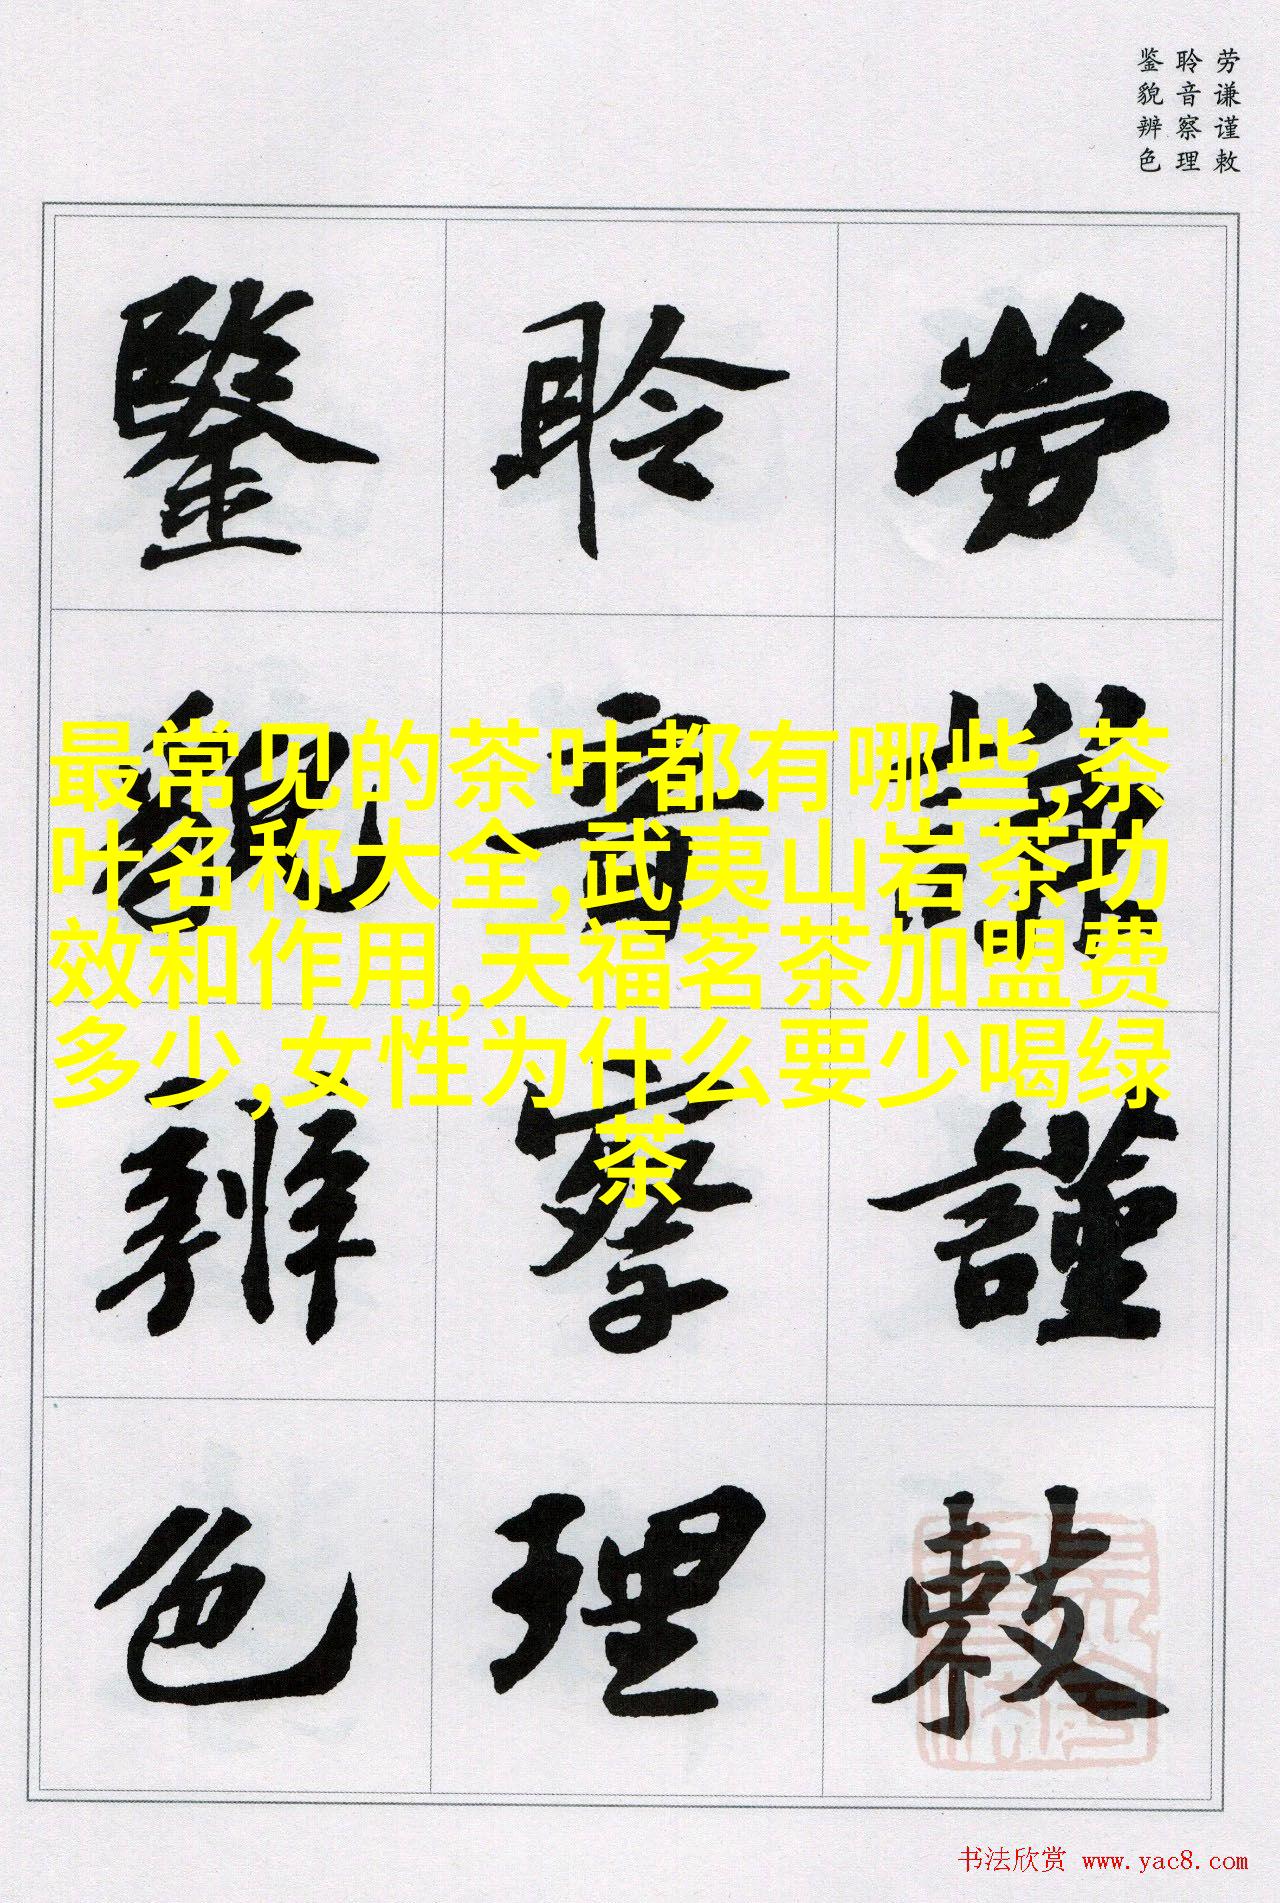 劳谦谨敕
聆音察理
鉴貌辨色
勞謙謹敕
聆音察理
鑒貌辨色
最常见的茶叶都有哪些,茶
叶名称大全,武夷山岩茶功
效和作用,天福茗茶加盟费
多少,女性为什么要少喝绿
茶
书法欣赏 www.yac8.com